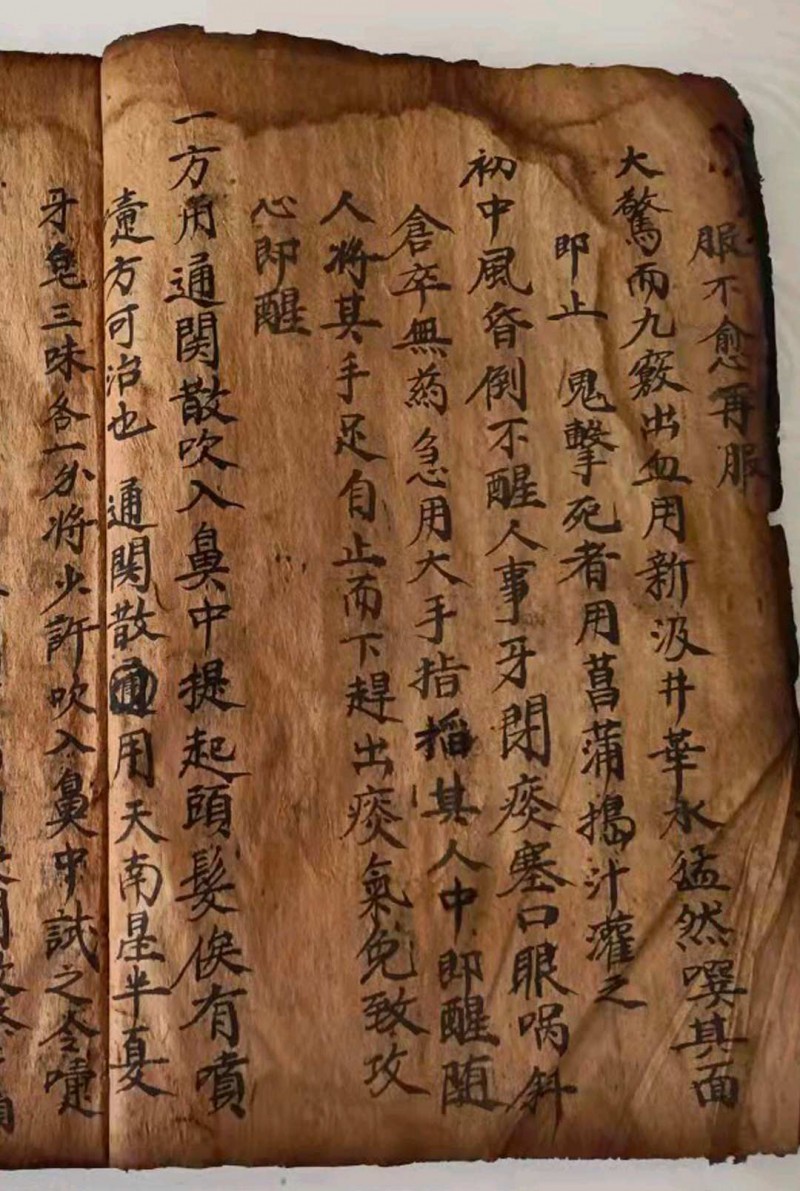 服不愈再服
大驚而九竅出血用新汲井華水猛然噀其面
即止 鬼擊死者用菖蒲搗汁灌之
初中風昏倒不醒人事牙閉痰塞口眼喎斜
倉卒無药急用大手指掐其人中即醒随
人将其手足自止而下趕出痰氣免致攻
心即醒
一方用通関散吹入鼻中提起頭髮俟有噴
嚏方可治也 通関散 用天南星半夏
牙皂三味各一分将少許吹入鼻中試之令嚏